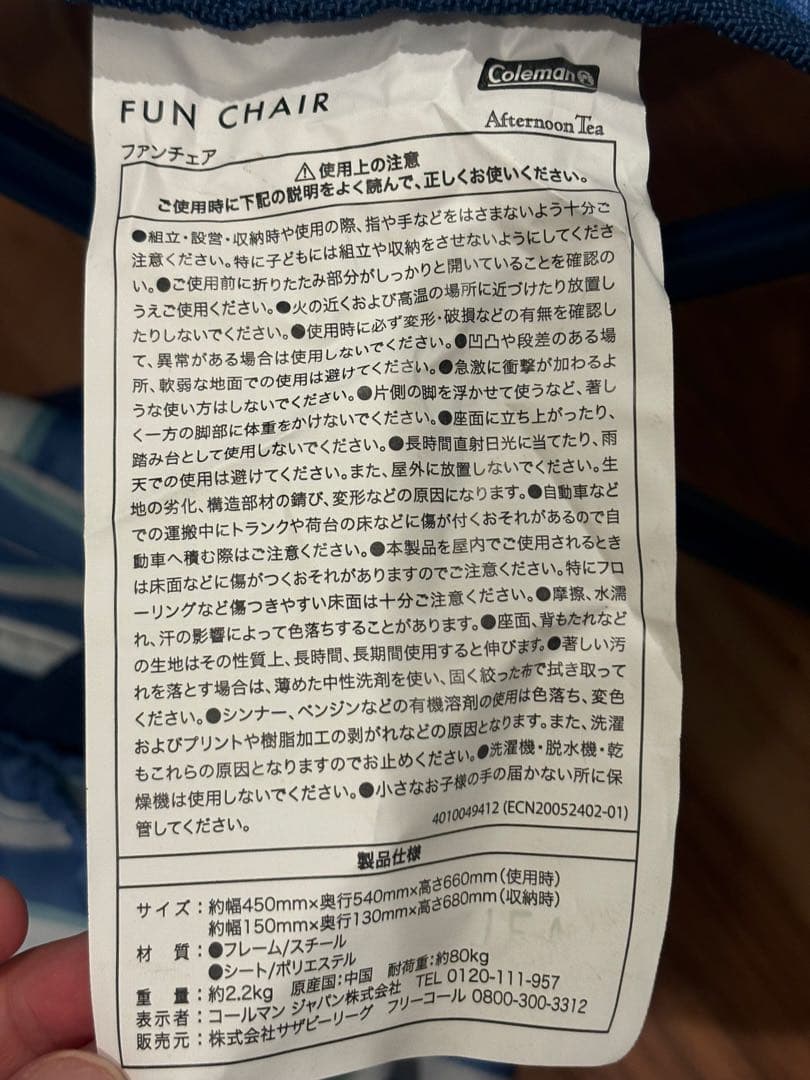 Coleman
FUN CHAIR
Afternoon Tea
ファンチェア
⚠使用上の注意
ご使用時に下記の説明をよく読んで、正しくお使いください。
●組立・設営・収納時や使用の際、指や手などをはさまないよう十分ご
注意ください。特に子どもには組立や収納をさせないようにしてくださ
い。●ご使用前に折りたたみ部分がしっかりと開いていることを確認の
うえご使用ください。●火の近くおよび高温の場所に近づけたり放置し
たりしないでください。●使用時に必ず変形・破損などの有無を確認し
て、異常がある場合は使用しないでください。●凹凸や段差のある場
所、軟弱な地面での使用は避けてください。●急激に衝撃が加わるよ
うな使い方はしないでください。●片側の脚を浮かせて使うなど、著し
く一方の脚部に体重をかけないでください。●座面に立ち上がったり、
踏み台として使用しないでください。●長時間直射日光に当てたり、雨
天での使用は避けてください。また、屋外に放置しないでください。生
地の劣化、構造部材の錆び、変形などの原因になります。●自動車など
での運搬中にトランクや荷台の床などに傷が付くおそれがあるので自
動車へ積む際はご注意ください。●本製品を屋内でご使用されるとき
は床面などに傷がつくおそれがありますのでご注意ください。特にフロ
ーリングなど傷つきやすい床面は十分ご注意ください。●摩擦、水濡
れ、汗の影響によって色落ちすることがあります。●座面、背もたれなど
の生地はその性質上、長時間、長期間使用すると伸びます。●著しい汚
れを落とす場合は、薄めた中性洗剤を使い、固く絞った布で拭き取って
ください。●シンナー、ベンジンなどの有機溶剤の使用は色落ち、変色
およびプリントや樹脂加工の剥がれなどの原因となります。また、洗濯
もこれらの原因となりますのでお止めください。●洗濯機・脱水機・乾
燥機は使用しないでください。●小さなお子様の手の届かない所に保
管してください。
4010049412 (ECN20052402-01)
製品仕様
サイズ：約幅450mm×奥行540mm×高さ660mm（使用時）
約幅150mm×奥行130mm×高さ680mm（収納時）
材 質：●フレーム/スチール
●シート/ポリエステル
重 量：約2.2kg 原産国：中国 耐荷重：約80kg
表示者：コールマン ジャパン株式会社 TEL 0120-111-957
販売元：株式会社サザビーリーグ フリーコール 0800-300-3312